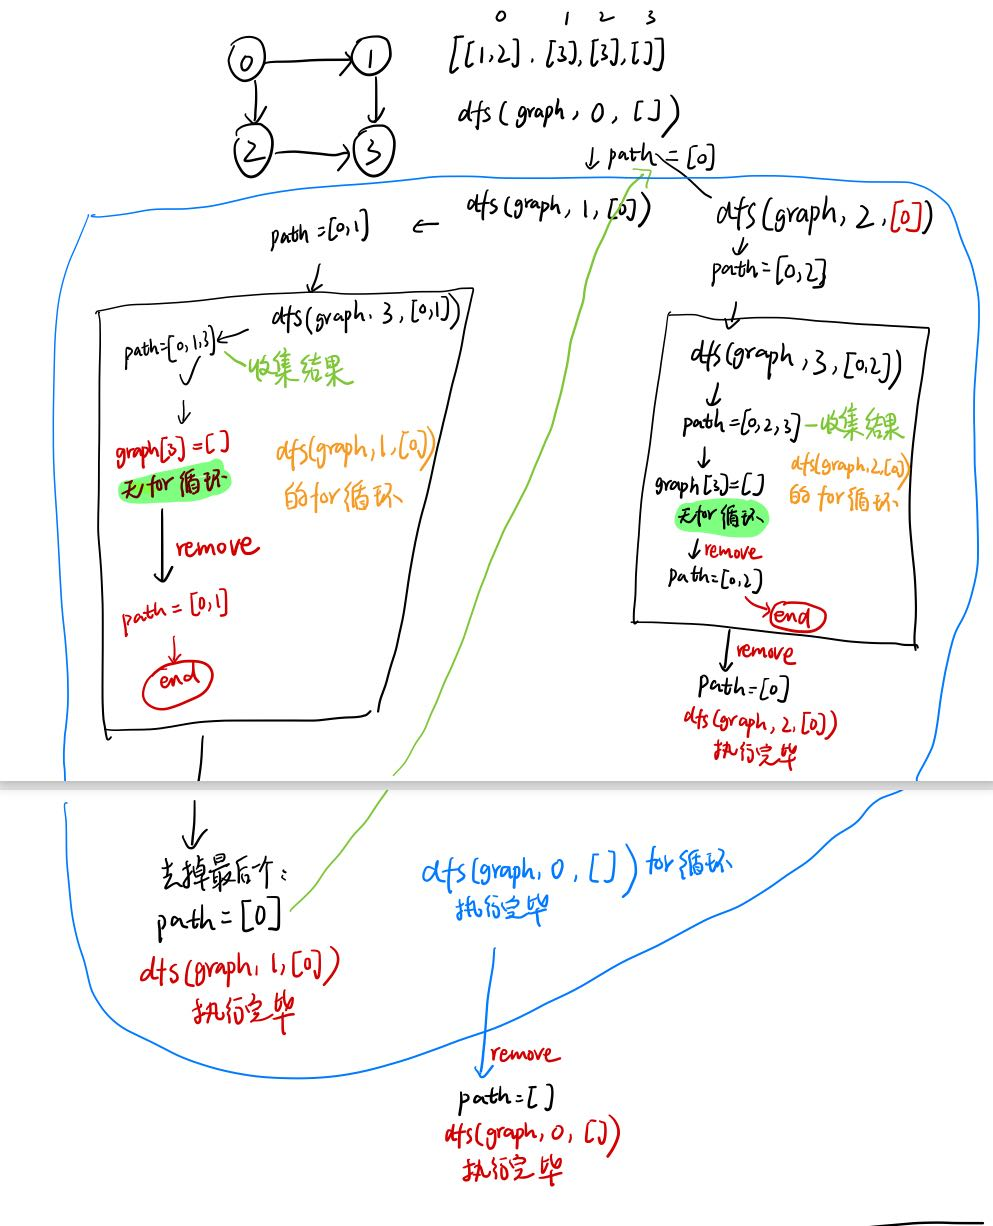 0 1 2 3
[[1,2], [3],[3],[]]
0 1
2 3
dfs(graph, 0, [])
path = [0]
dfs(graph, 1, [0])
path=[0,1]
dfs(graph, 3, [0,1])
path=[0,1,3]
收集结果
graph[3]=[]
无for循环
dfs(graph,1,[0])
的for循环
remove
path = [0,1]
end
去掉最后个:
path=[0]
dfs(graph, 1,[0])
执行完毕
dfs(graph, 2,[0])
path=[0,2]
dfs(graph, 3, [0,2])
path=[0,2,3]
收集结果
graph[3]=[]
无for循环
dfs(graph,2,[0])
的for循环
remove
path=[0,2]
end
remove
path=[0]
dfs(graph, 2,[0])
执行完毕
dfs(graph, 0, []) for循环
执行完毕
remove
path=[]
dfs(graph, 0, [])
执行完毕